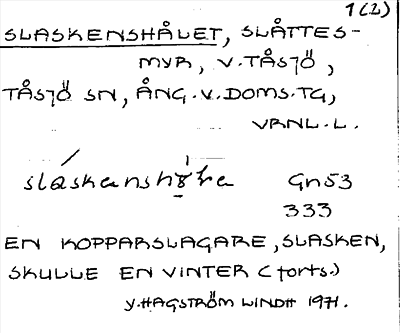 1(2)
SLASKENSHÅLET, SLÅTTES-
MYR, V.TÅSJÖ,
TÅSJÖ SN, ÅNG.V.DOMS.TG,
VRNL.L.
Gn53
333
EN KOPPARSLAGARE, SLASKEN,
SKULLE EN VINTER (forts.)
Y.HAGSTRÖM LINDH 1971.